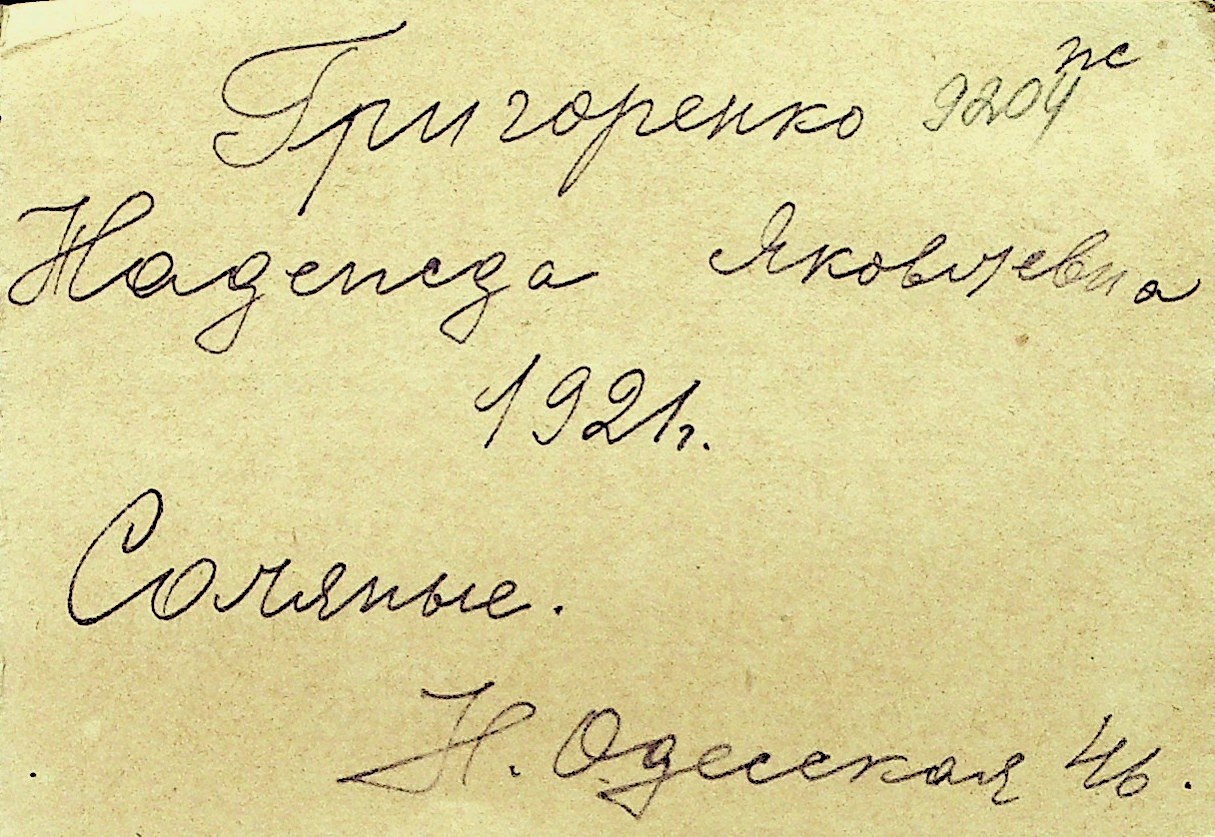 Григоренко 9204 пс
Надежда Яковлевна
1921г.
Соляные.
Н. Одесская 46.